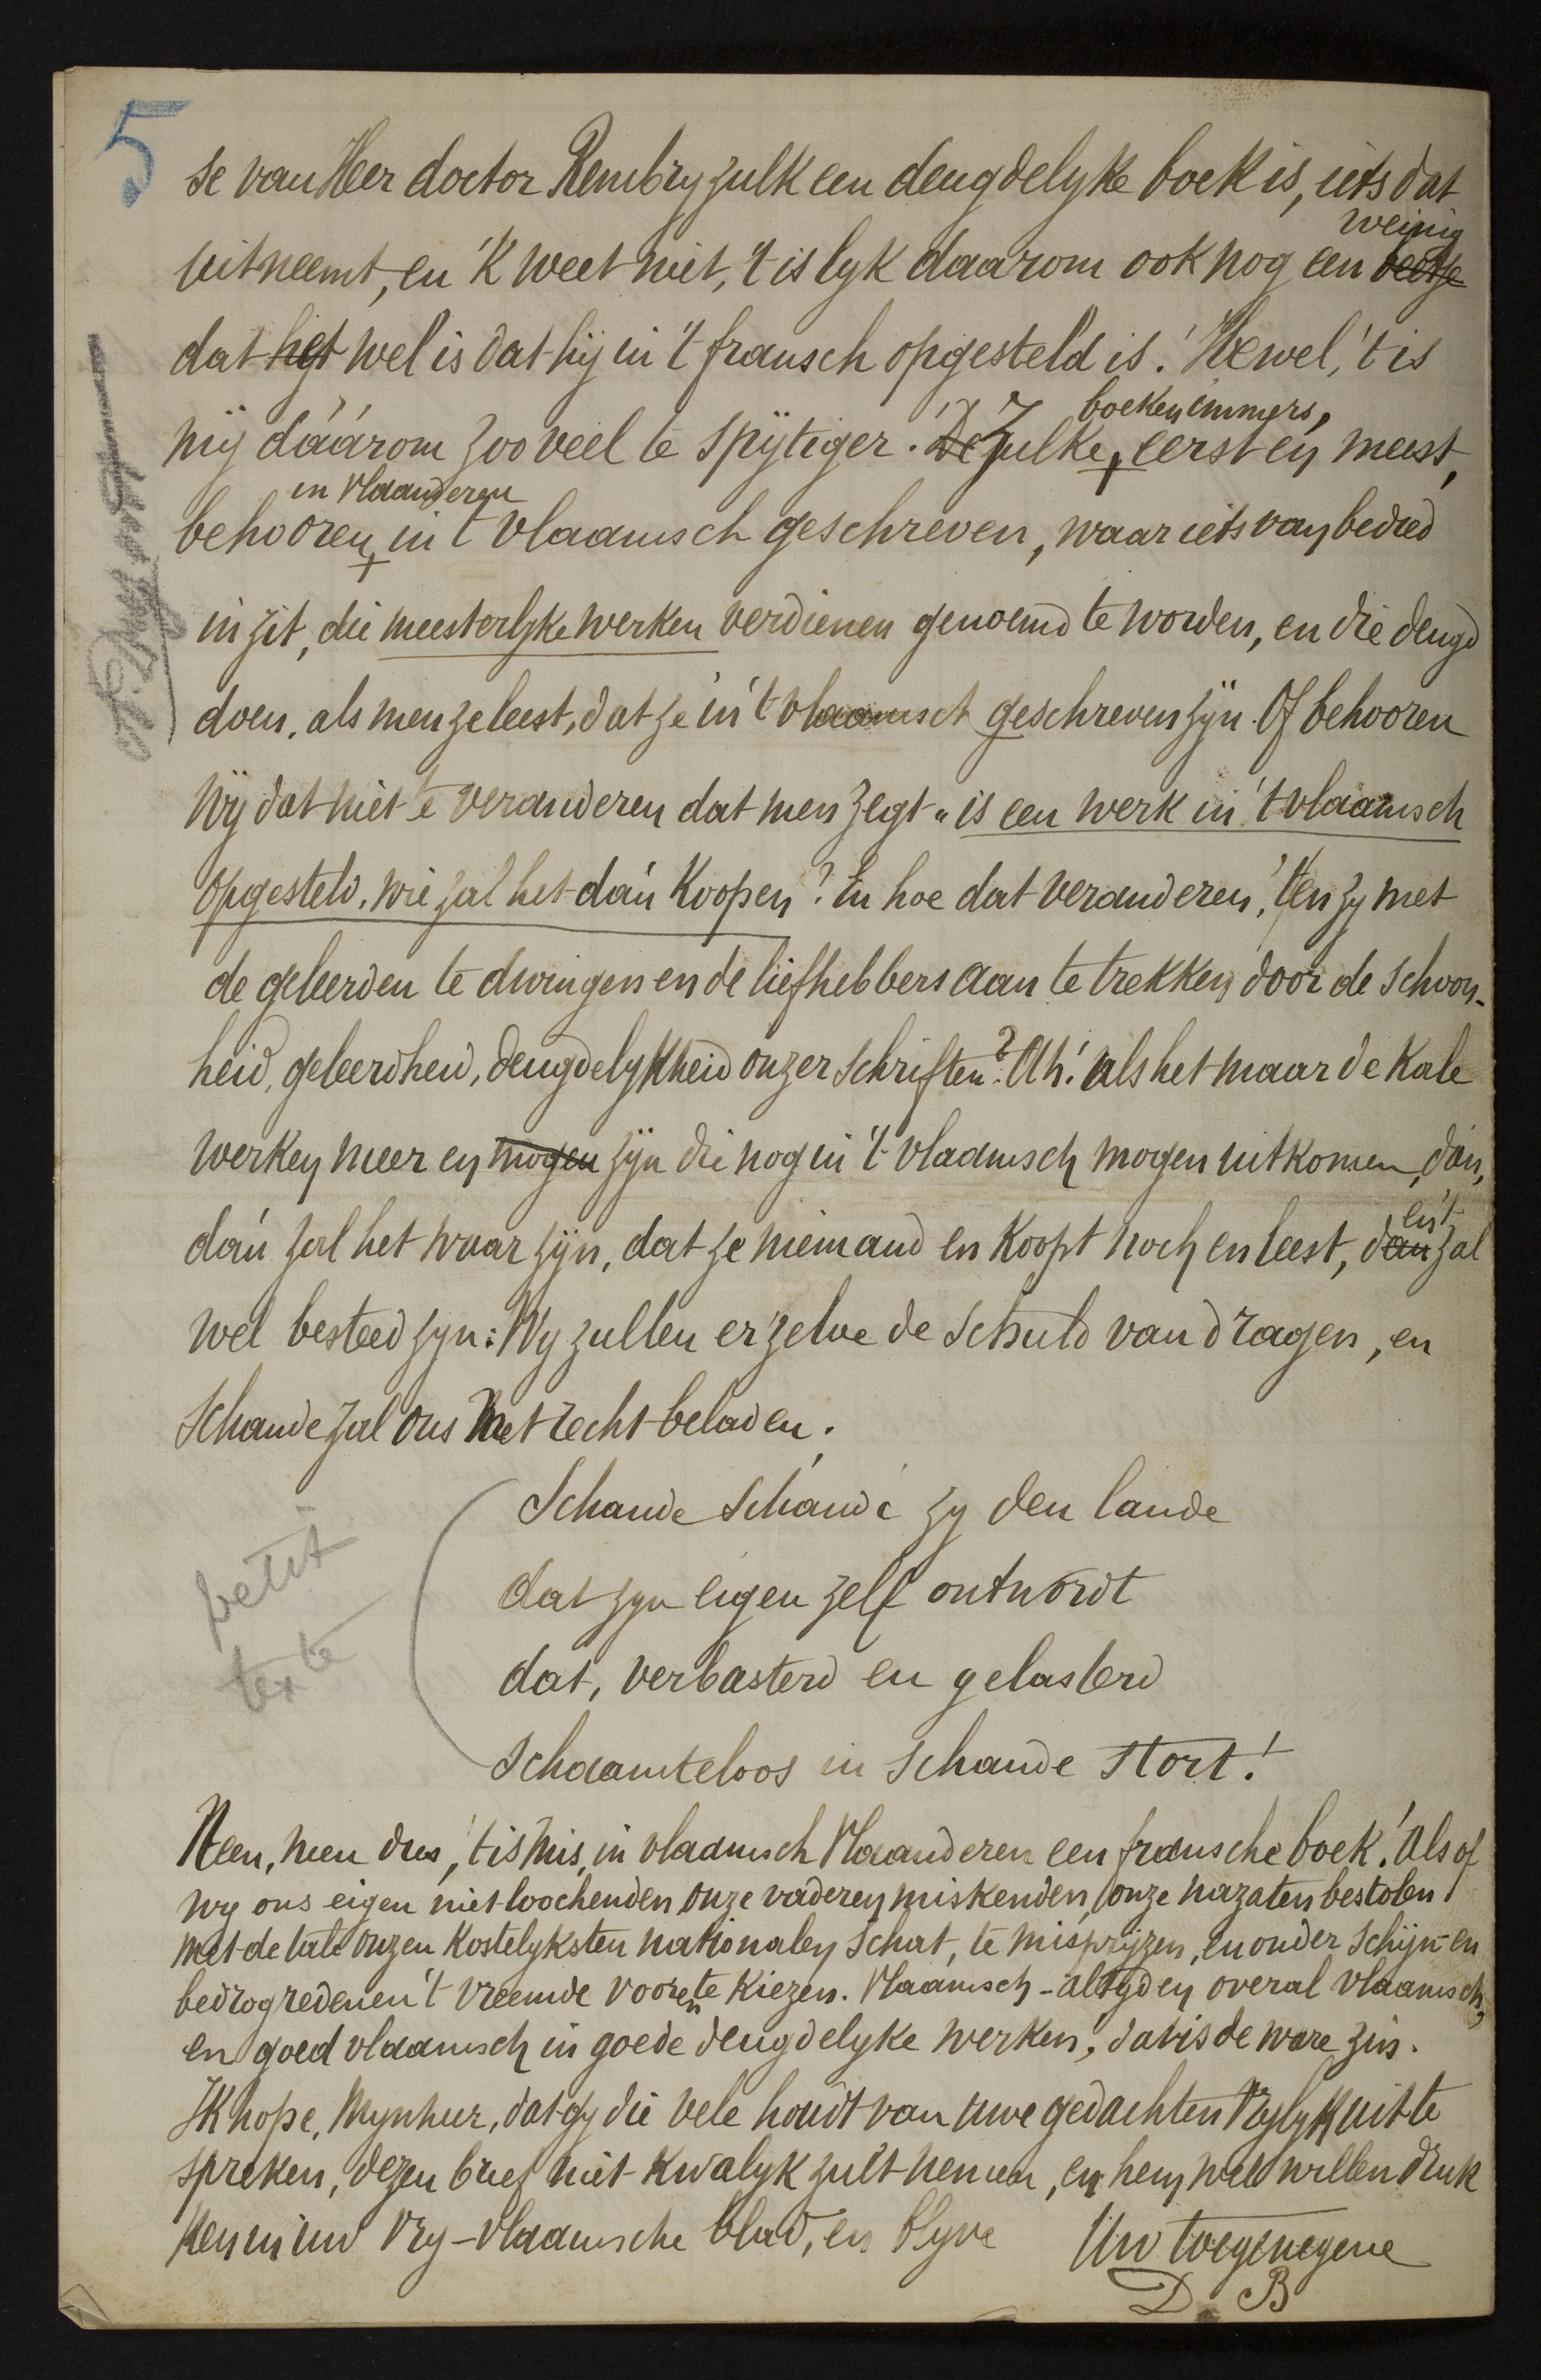 5
se van Heer doctor Rembry zulk een deugdelyke boek is, iets dat
weinig
uitneemt, en 'k weet niet, 't is lyk daarom ook nog een beetje
dat het wel is dat hij in 't fransch opgesteld is! Hewel, 't is
mij dáárom zoo veel te spijtiger. De Zulke, eerst en meest,
boeken immers,
in Vlaanderen
behooren in 't vlaamsch geschreven, waar iets van bedied
in zit, die meesterlyke werken verdienen genoemd te worden, en die deugd
doen, als men ze leest, dat ze in 't vlaamsch geschreven zijn. Of behooren
wij dat niet te veranderen dat men zegt "is een werk in 't vlaamsch
opgesteld, wie zal het dán koopen? En hoe dat veranderen, 't en zy met
de geleerden te dwingen en de liefhebbers aan te trekken door de schoon-
heid, geleerdheid, deugdelykheid onzer schriften? Ah! als het maar de kale
werken meer en mogen zijn die nog in 't vlaamsch mogen uitkomen, dán,
dán zal het waar zijn, dat ze niemand en koopt noch en leest, dan zal
en 't
wel besteed zyn: Wy zullen er zelve de schuld van dragen, en
schande zal ons met recht beladen.
Schande schande zy den lande
dat zyn eigen zelf ontwordt
dat, verbasterd en gelasterd
schaamteloos in schande stort!
petit
texte
Neen, neen dus, 't is mis, in vlaamsch Vlaanderen een fransche boek! Als of
wy ons eigen niet loochenden, onze vaderen miskenden, onze nazaten bestolen
met de tale onzen kostelyksten nationalen schat, te misprijzen, en onder schijn- en
bedrogredenen 't vreemde vooren te kiezen. Vlaamsch - altyd en overal vlaamsch,
en goed vlaamsch in goede deugdelyke werken, dat is de ware zin.
Ik hope, Mynheer, dat gy die vele houdt van uwe gedachten vrylyk uit te
spreken, dezen brief niet kwalyk zult nemen, en hem wel willen druk
ken in uw vry-vlaamsche blad, en blyve Uw toegenegene
D. B